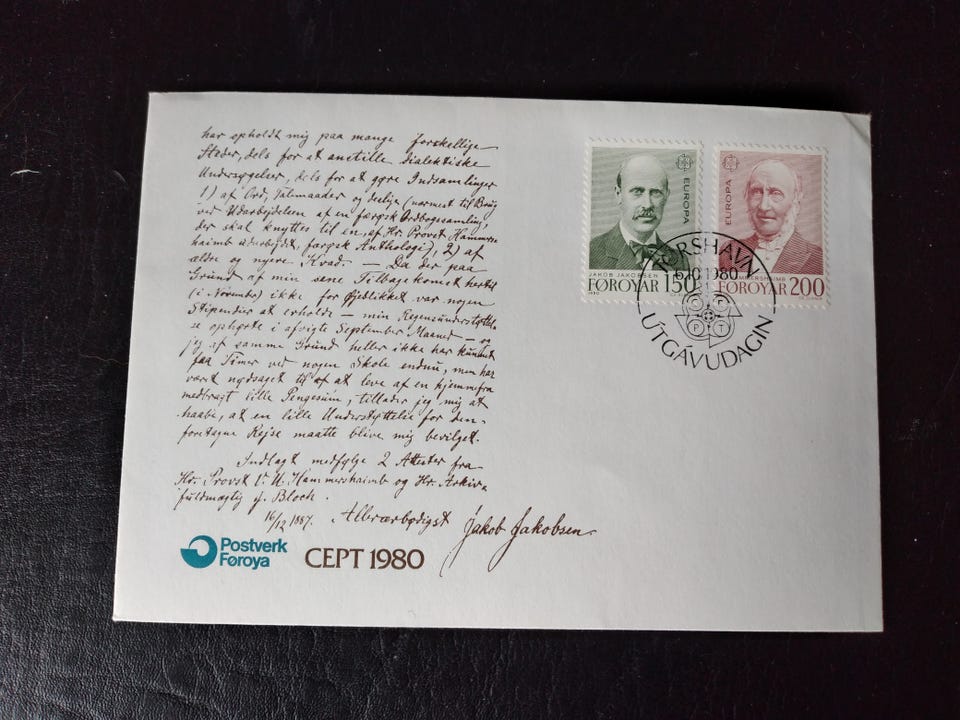 har opholdt mig paa mange forskellige
Steder, dels for at anstille dialektiske
Undersøgelser, dels for at gøre Indsamlinger
1) af Ord, Talemaader og deslige (nærmest til Brug
ved Udarbejdelsen af en færøsk Ordbogssamling,
der skal knyttes til en, af Hr. Provst Hammers-
haimb udarbejdet, færøsk Anthologi), 2) af
ældre og nyere Kvad. — Da der paa
Grund af min sene Tilbagekomst hertil
(i November) ikke for Øjeblikket var nogen
Stipendier at erholde — min Regensunderstøttel-
se ophørte i afvigte September Maaned — og
jeg af samme Grund heller ikke har kunnet
faa Timer ved nogen Skole endnu, men har
været nødsaget til at leve af en hjemmefra
medbragt lille Pengesum, tillader jeg mig at
haabe, at en lille Understøttelse for den
foretagne Rejse maatte blive mig bevilget.
Indlagt medfølge 2 Attester fra
Hr. Provst V. U. Hammershaimb og Hr. Arkiv-
fuldmægtig J. Bloch.
16/12 1887. Allerærbødigst Jakob Jakobsen
Postverk
Føroya
CEPT 1980
EUROPA
JAKOB JAKOBSEN
FØROYAR 150
1980
EUROPA
FØROYAR 200
TÓRSHAVN
6.10.1980
C E P T
ÚTGÁVUDAGIN